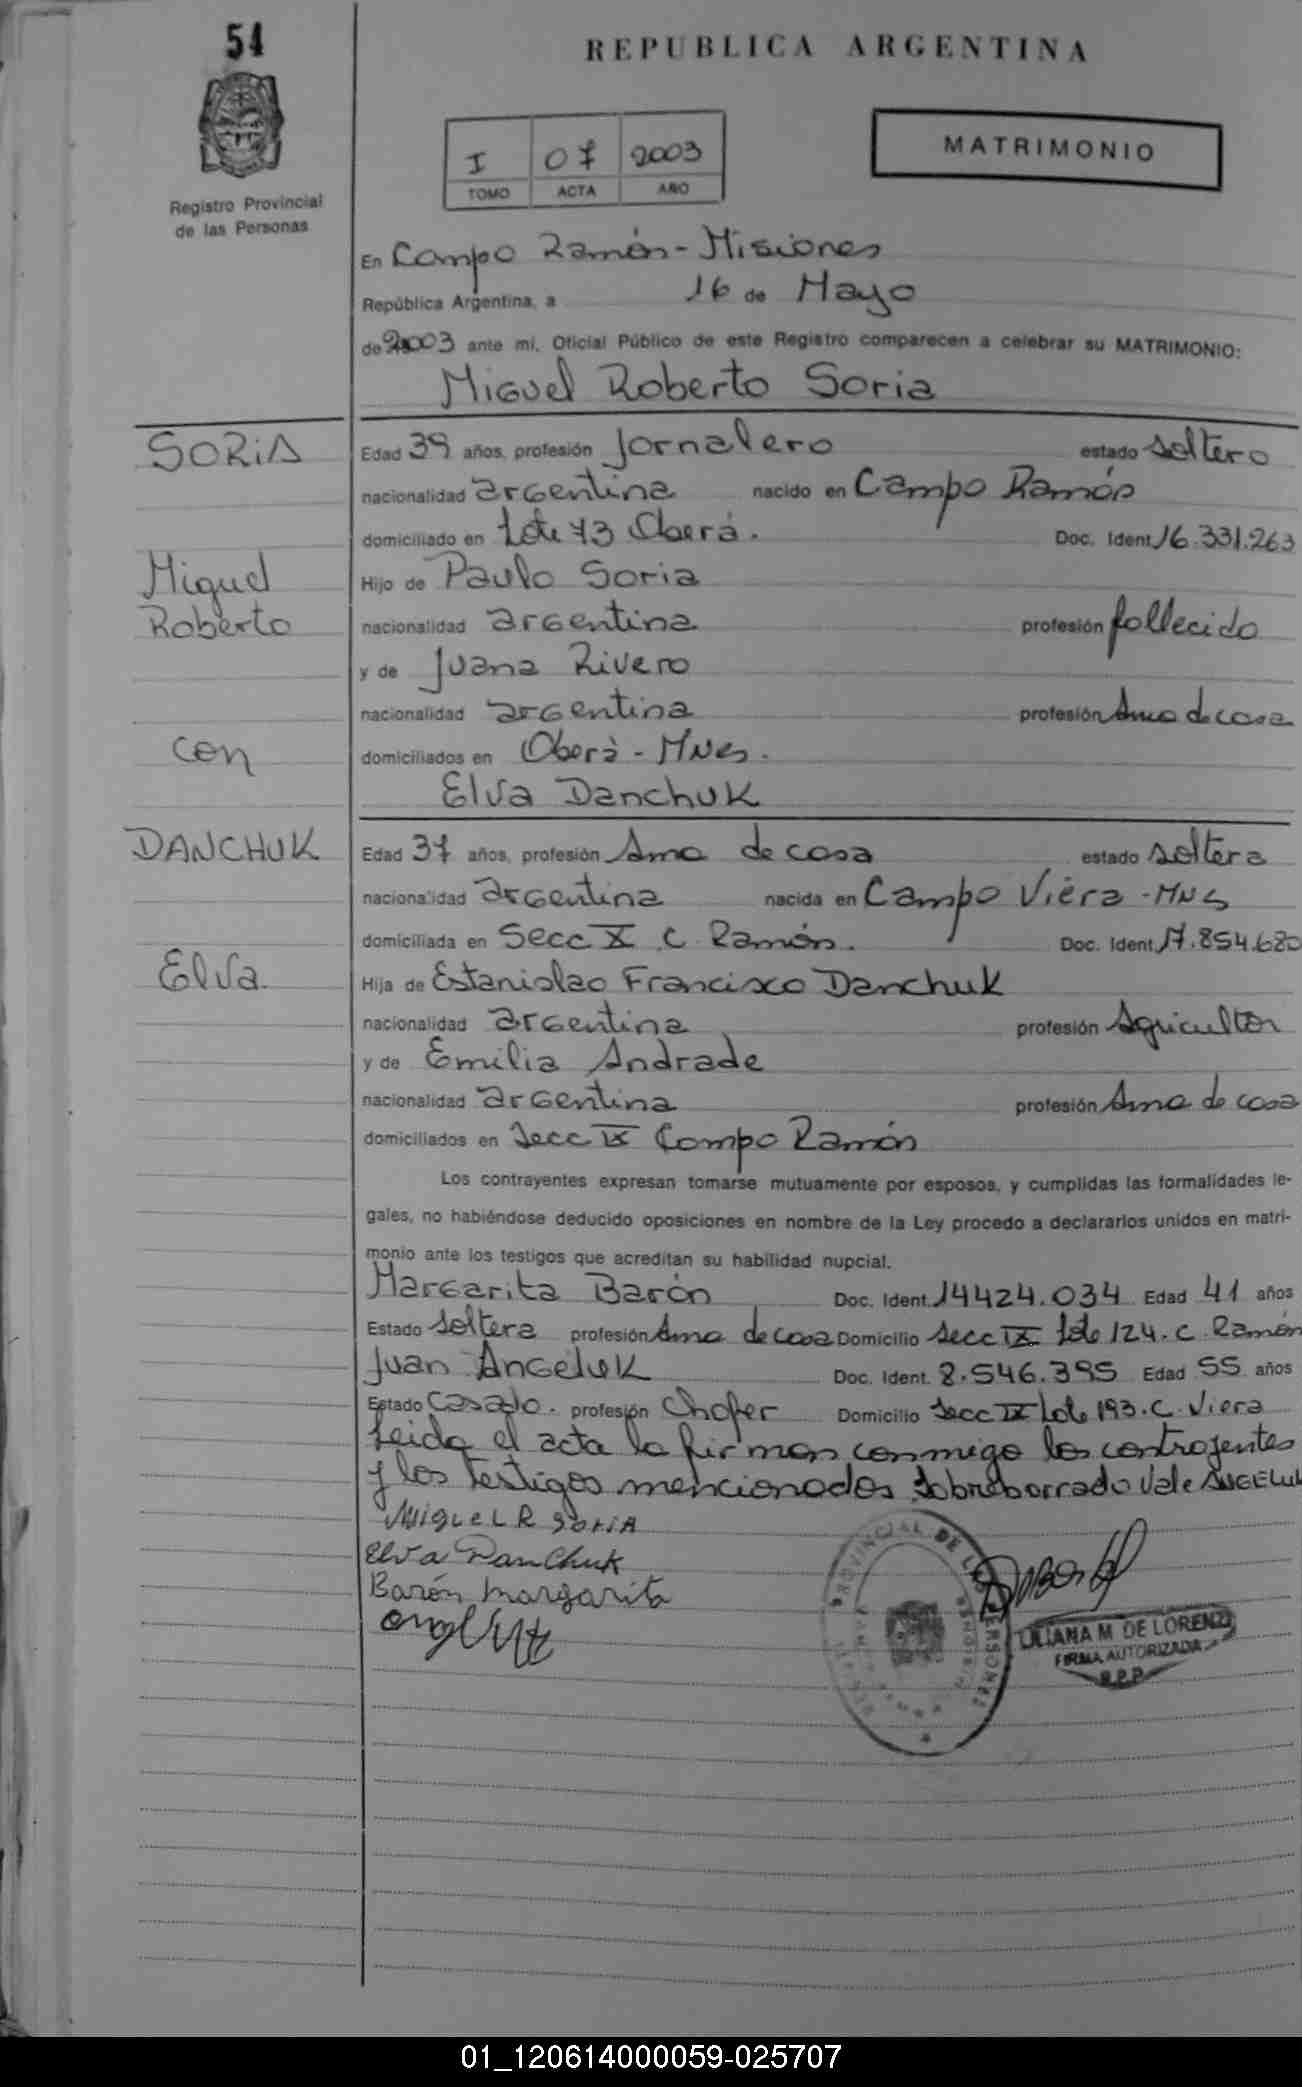 54
REPUBLICA ARGENTINA
I 07 2003
TOMO ACTA AÑO
MATRIMONIO
Registro Provincial
de las Personas
En Campo Ramón - Misiones
República Argentina, a 16 de Mayo
de 2003 ante mí, Oficial Público de este Registro comparecen a celebrar su MATRIMONIO:
Miguel Roberto Soria
SORIA
Edad 39 años, profesión Jornalero estado soltero
nacionalidad argentina nacido en Campo Ramón
domiciliado en Lote 73 Oberá. Doc. Ident. 16.331.263
Miguel
Hijo de Paulo Soria
Roberto
nacionalidad argentina profesión fallecido
y de Juana Rivero
nacionalidad argentina profesión Ama de casa
con
domiciliados en Oberá - Mnes.
Elva Danchuk
DANCHUK
Edad 37 años, profesión Ama de casa estado soltera
nacionalidad argentina nacida en Campo Viera - MNES
domiciliada en Secc X C. Ramón. Doc. Ident. 17.854.680
Elva
Hija de Estanislao Francisco Danchuk
nacionalidad argentina profesión Agricultor
y de Emilia Andrade
nacionalidad argentina profesión Ama de casa
domiciliados en Secc IX Campo Ramón
Los contrayentes expresan tomarse mutuamente por esposos, y cumplidas las formalidades le-
gales, no habiéndose deducido oposiciones en nombre de la Ley procedo a declararlos unidos en matri-
monio ante los testigos que acreditan su habilidad nupcial.
Margarita Barón Doc. Ident. 14424.034 Edad 41 años
Estado soltera profesión Ama de casa Domicilio Secc IX Lote 124. C. Ramón
Juan Angeluk Doc. Ident. 8.546.395 Edad 55 años
Estado Casado. profesión Chofer Domicilio Secc IX Lote 193. C. Viera
Leida el acta la firman conmigo los contrayentes
y los testigos mencionados. Sobreborrado Vale ANGELUK
Miguel R Soria
Elva Danchuk
Barón Margarita
LILIANA M. DE LORENZI
FIRMA AUTORIZADA
R.P.P.
01_120614000059-025707